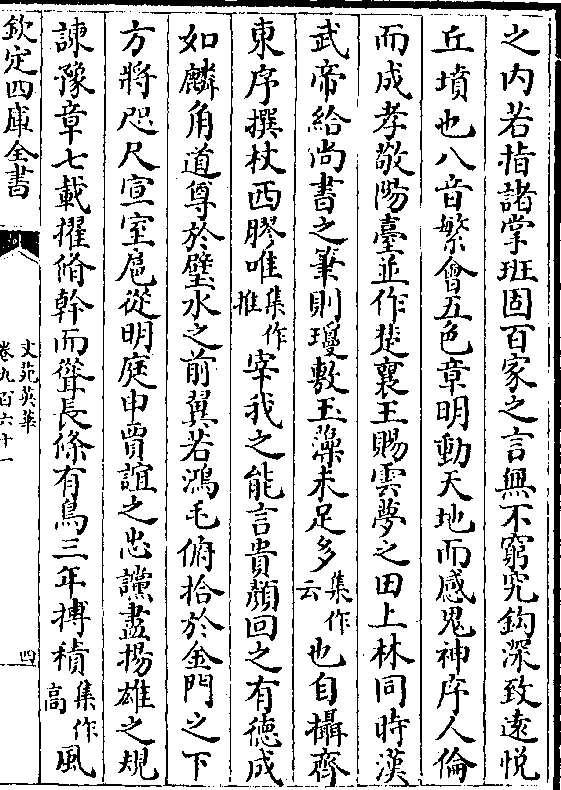 之内若指諸掌班固百家之言無不窮究鈎深致遠悦
丘墳也八音繁會五色章明動天地而感鬼神序人倫
而成孝敬陽臺並作楚襄王賜雲夢之田上林同時漢
武帝給尚書之筆則瓊敷玉藻未足多集作云也自攝齊
東序撰杖西膠唯集作推宰我之能言貴顔回之有德成
如麟角道尊於璧水之前翼若鴻毛俯拾於金門之下
方將咫尺宣室扈從明庭申賈誼之忠讜盡揚雄之規
諫豫章七載擢脩幹而聳長條有鳥三年摶積集作高風
欽定四庫全書
文苑英華
卷九百六十一
四